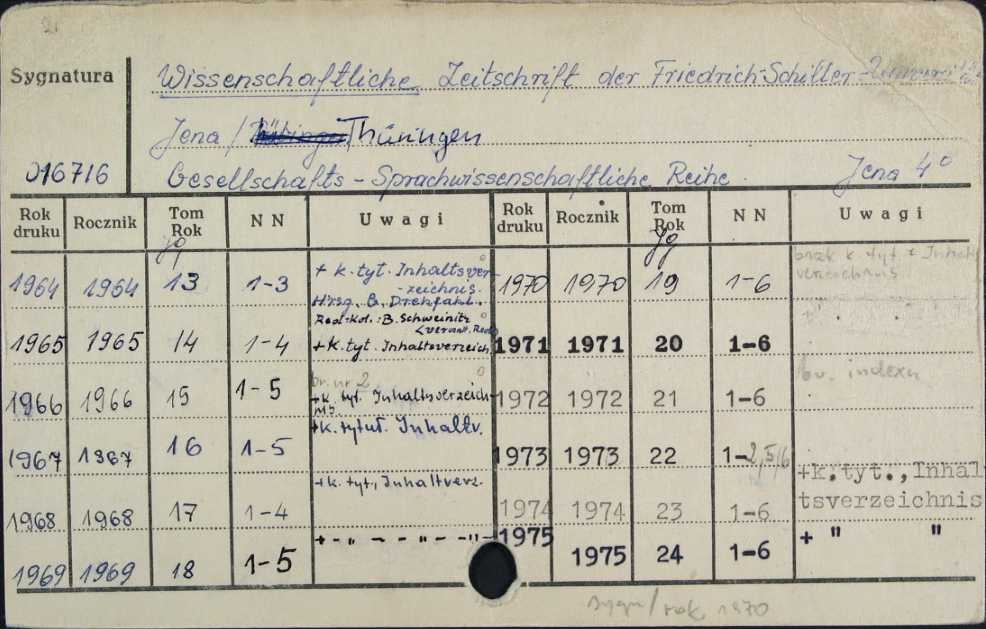 Sygnatura
Wissenschaftliche Zeitschrift der Friedrich-Schiller-
Jena / Thüringen
016716
Gesellschafts - Sprachwissenschaftliche Reihe. Jena 4°
Rok druku Rocznik Tom Rok NN Uwagi Rok druku Rocznik Tom Rok NN Uwagi
Jg Jg
1964 1964 13 1-3 + k.tyt. Inhaltsver-
-zeichnis.
Hrsg. B. Drehfahl.
1970 1970 19 1-6 brak k. tyt + Inhalts
verzeichnis
1965 1965 14 1-4 Red-Kol.: B. Schweinitz
+k.tyt. Inhaltsverzeich
1971 1971 20 1-6
1966 1966 15 1-5 br. nr 2
+k. tyt. Inhaltsverzeich-
nis.
1972 1972 21 1-6 br. indexu
1967 1967 16 1-5 +k.tytuł. Inhaltv.
1973 1973 22 1-2,5/6
1968 1968 17 1-4 +k.tyt., Inhaltverz.
1974 1974 23 1-6 +k.tyt.,Inhal
tsverzeichnis
1969 1969 18 1-5 + - " - - " - -"-
1975 1975 24 1-6 + " "
rok 1970